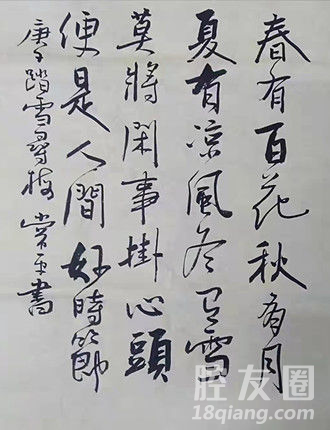 春有百花秋有月
夏有涼風冬有雪
莫將閑事掛心頭
便是人間好時節
庚子踏雪尋梅 常平書
胫友圈
18qiang.com